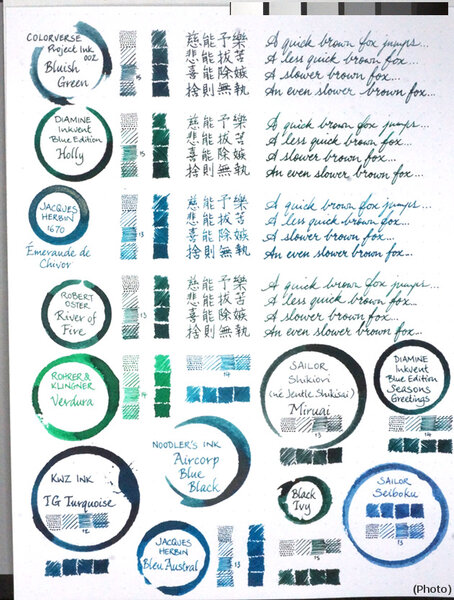 COLORVERSE
Project Ink
002
Bluish
Green
15
慈能予樂
悲能拔苦
喜能除嫉
捨則無執
A quick brown fox jumps...
A less quick brown fox...
A slower brown fox...
An even slower brown fox...
DIAMINE
Inkvent
Blue Edition
Holly
15
慈能予樂
悲能拔苦
喜能除嫉
捨則無執
A quick brown fox jumps...
A less quick brown fox...
A slower brown fox...
An even slower brown fox...
JACQUES
HERBIN
1670
Émeraude de
Chivor
13
慈能予樂
悲能拔苦
喜能除嫉
捨則無執
A quick brown fox jumps...
A less quick brown fox...
A slower brown fox...
An even slower brown fox...
ROBERT
OSTER
River of
Fire
13
慈能予樂
悲能拔苦
喜能除嫉
捨則無執
A quick brown fox jumps...
A less quick brown fox...
A slower brown fox...
An even slower brown fox...
ROHRER &
KLINGNER
Verdura
SAILOR
Shikiori
(né Jentle Shikisai)
Miruai
13
DIAMINE
Inkvent
Blue Edition
Seasons
Greetings
14
NOODLER'S INK
Aircorp
Blue
Black
KWZ INK
IG Turquoise
12
Black
Ivy
15
SAILOR
Seiboku
13
JACQUES
HERBIN
Bleu Austral
13
(Photo)